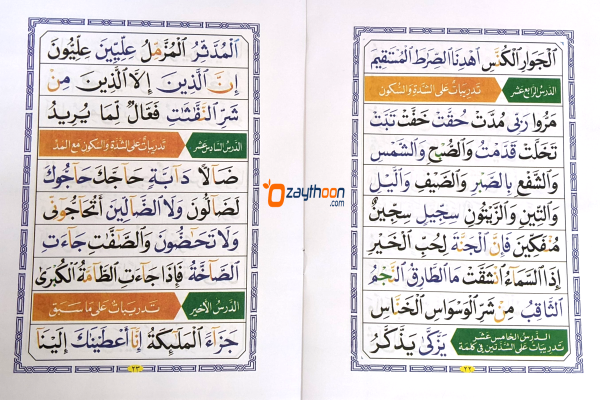 الْجَوَارِ الْكُنَّسِ اهْدِنَا الصِّرَاطَ الْمُسْتَقِيمَ
الدرس الرابع عشر تدريبات على الشدة والسكون
مَرُّوا رَبِّى مُدَّتْ حُقَّتْ خَفَّتْ تَبَّتْ
تَخَلَّتْ قَدَّمْتُ وَالصُّبْحِ وَالشَّمْسِ
وَالشَّفْعِ بِالصَّبْرِ وَالصَّيْفِ وَالَّيْلِ
وَالتِّينِ وَالزَّيْتُونِ سِجِّيلٍ سِجِّينٌ
مُنْفَكِّينَ فَإِنَّ الْجَنَّةَ لِحُبِّ الْخَيْرِ
إِذَا السَّمَاءُ انْشَقَّتْ مَا الطَّارِقُ النَّجْمُ
الثَّاقِبُ مِنْ شَرِّ الْوَسْوَاسِ الْخَنَّاسِ
الدرس الخامس عشر
تدريبات على الشدتين في كلمة يَزَّكَّى يَذَّكَّرُ
٢٢
الْمُدَّثِّرُ الْمُزَّمِّلُ عِلِّيِّينَ عِلِّيُّونَ
إِنَّ الَّذِينَ إِلَّا الَّذِينَ مِنْ
شَرِّ النَّفّٰثٰتِ فَعَّالٌ لِمَا يُرِيدُ
الدرس السادس عشر تدريبات على الشدة والسكون مع المد
ضَالًّا دَابَّةٍ حَاجَّكَ حَاجُّوكَ
لَضَالُّونَ وَلَا الضَّالِّينَ أَتُحَاجُّونِّى
وَلَا تَحٰضُّونَ وَالصّٰفّٰتِ جَاءَتِ
الصَّاخَّةُ فَإِذَا جَاءَتِ الطَّامَّةُ الْكُبْرَىٰ
الدرس الأخير تدريبات على ما سبق
جَزَاءً الْمَلٰئِكَةُ إِنَّا أَعْطَيْنٰكَ إِلَيْنَا
٢٣
Ozaythoon
.com